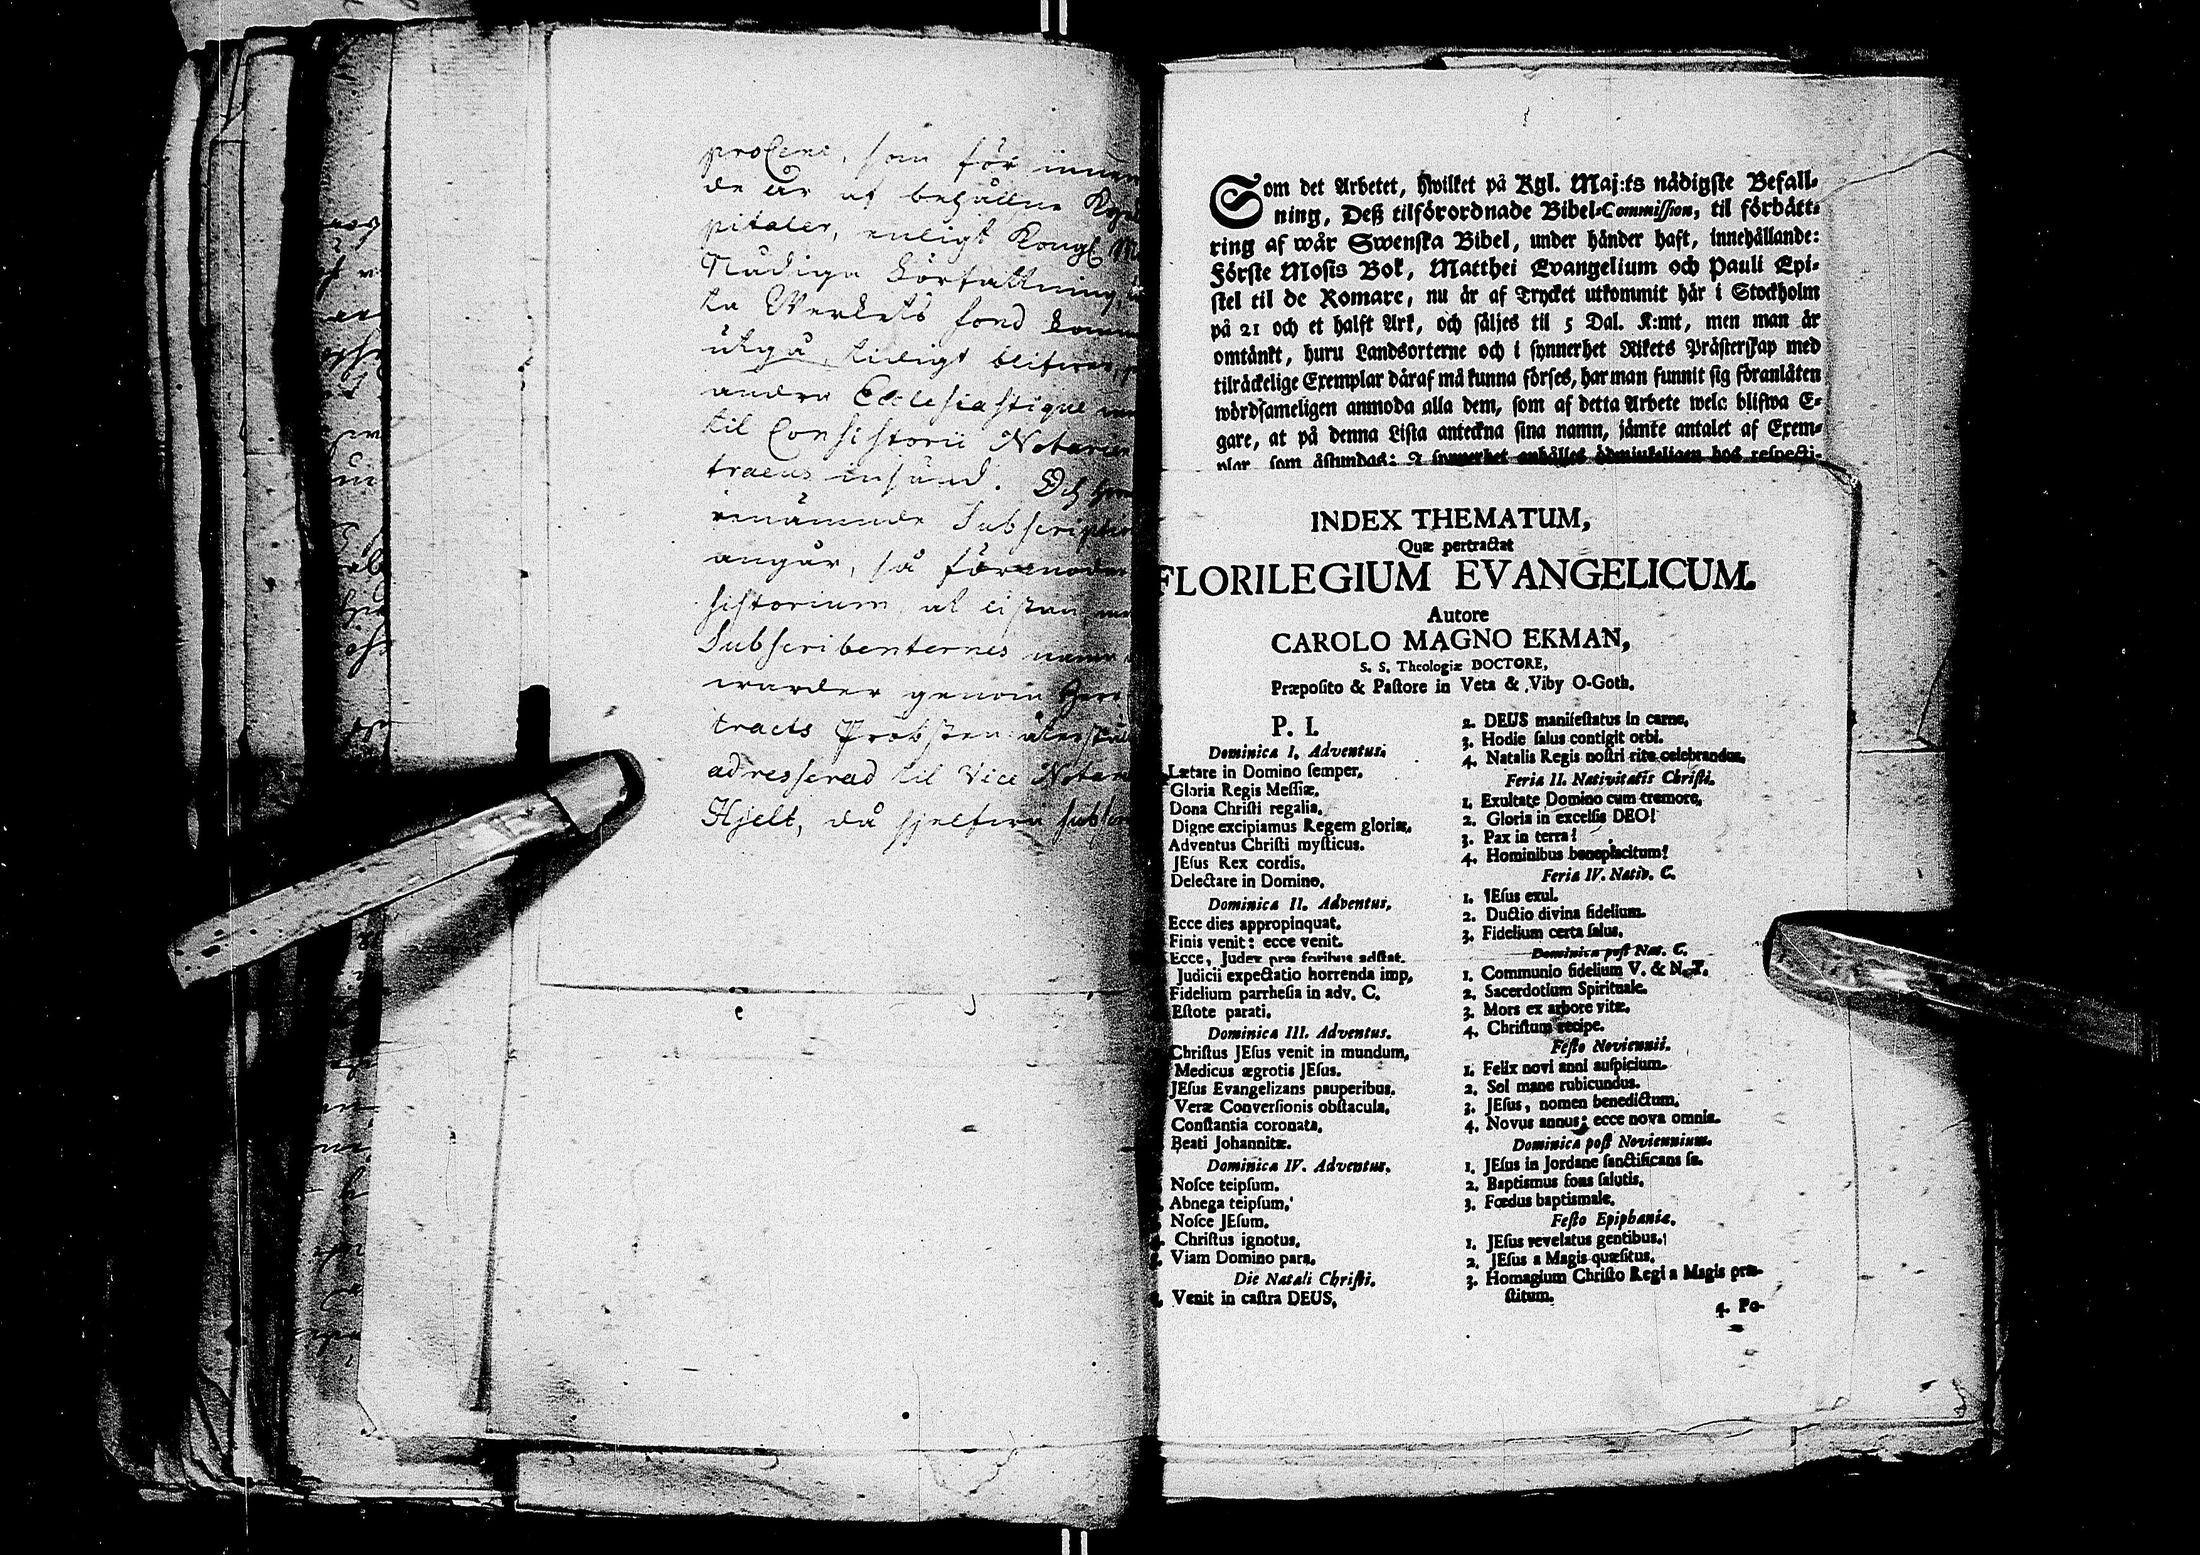 proCent, som för innew
de år af behållne Kyrk
pitaler, enligt Kongl. M
Nådiga Författning,
ta Werkets fond komm
utgå, tidigt blifwer,
andra Ecclesiastique
til Consistorii Notarien
tracus insänd. Och hwa
Subscription
angår, så förmodar
sistorium, at listan
Subscribenternes namn
warder genom Herr
tracts Probsten
adresserad til Vice Notar
Hjelt, då sjelfwa subscr
Som det Arbetet, hwilket på Kgl. Maj:ts nådigste Befall-
ning, Deß tilförordnade Bibel-Commission, til förbätt-
ring af wår Swenska Bibel, under händer haft, innehållande:
Förste Mosis Bok, Matthei Evangelium och Pauli Epi-
stel til de Romare, nu är af Trycket utkommit här i Stockholm
på 21 och et halft Ark, och säljes til 5 Dal. K:mt, men man är
omtänkt, huru Landsorterne och i synnerhet Rikets Prästerskap med
tilräckelige Exemplar däraf må kunna förses, har man funnit sig föranlåten
wördsameligen anmoda alla dem, som af detta Arbete wela blifwa E-
gare, at på denna Lista anteckna sina namn, jämte antalet af Exem-
plar, som åstundas: I synnerhet anhålles ödmjukeligen hos respecti-
INDEX THEMATUM,
Quæ pertractat
FLORILEGIUM EVANGELICUM.
Autore
CAROLO MAGNO EKMAN,
S. S. Theologiæ DOCTORE,
Præposito & Pastore in Veta & Viby O-Goth.
P. I.
Dominica I. Adventus.
Lætare in Domino semper.
Gloria Regis Messiæ.
Dona Christi regalia.
Digne excipiamus Regem gloriæ.
Adventus Christi mysticus.
JEsus Rex cordis.
Delectare in Domino.
Dominica II. Adventus.
Ecce dies appropinquat.
Finis venit: ecce venit.
Ecce, Judex præ foribus adstat.
Judicii expectatio horrenda imp.
Fidelium parrhesia in adv. C.
Estote parati.
Dominica III. Adventus.
Christus JEsus venit in mundum.
Medicus ægrotis JEsus.
JEsus Evangelizans pauperibus.
Veræ Conversionis obstacula.
Constantia coronata.
Beati Johannitæ.
Dominica IV. Adventus.
Nosce teipsum.
Abnega teipsum.
Nosce JEsum.
Christus ignotus.
Viam Domino para.
Die Natali Christi.
Venit in castra DEUS.
2. DEUS manifestatus in carne.
3. Hodie salus contigit orbi.
4. Natalis Regis nostri rite celebrandus.
Feria II. Nativitatis Christi.
1. Exultate Domino cum tremore.
2. Gloria in excelsis DEO!
3. Pax in terra!
4. Hominibus beneplacitum!
Feria IV. Nativ. C.
1. JEsus exul.
2. Ductio divina fidelium.
3. Fidelium certa salus.
Dominica post Nat. C.
1. Communio fidelium V. & N. T.
2. Sacerdotium Spirituale.
3. Mors ex arbore vitæ.
4. Christum recipe.
Festo Noviennii.
1. Felix novi anni auspicium.
2. Sol mane rubicundus.
3. JEsus, nomen benedictum.
4. Novus annus; ecce nova omnia.
Dominica post Noviennium.
1. JEsus in Jordane sanctificans se.
2. Baptismus fons salutis.
3. Fœdus baptismale.
Festo Epiphaniæ.
1. JEsus revelatus gentibus.
2. JEsus a Magis quæsitus.
3. Homagium Christo Regi a Magis præ-
stitum.
4. Po-